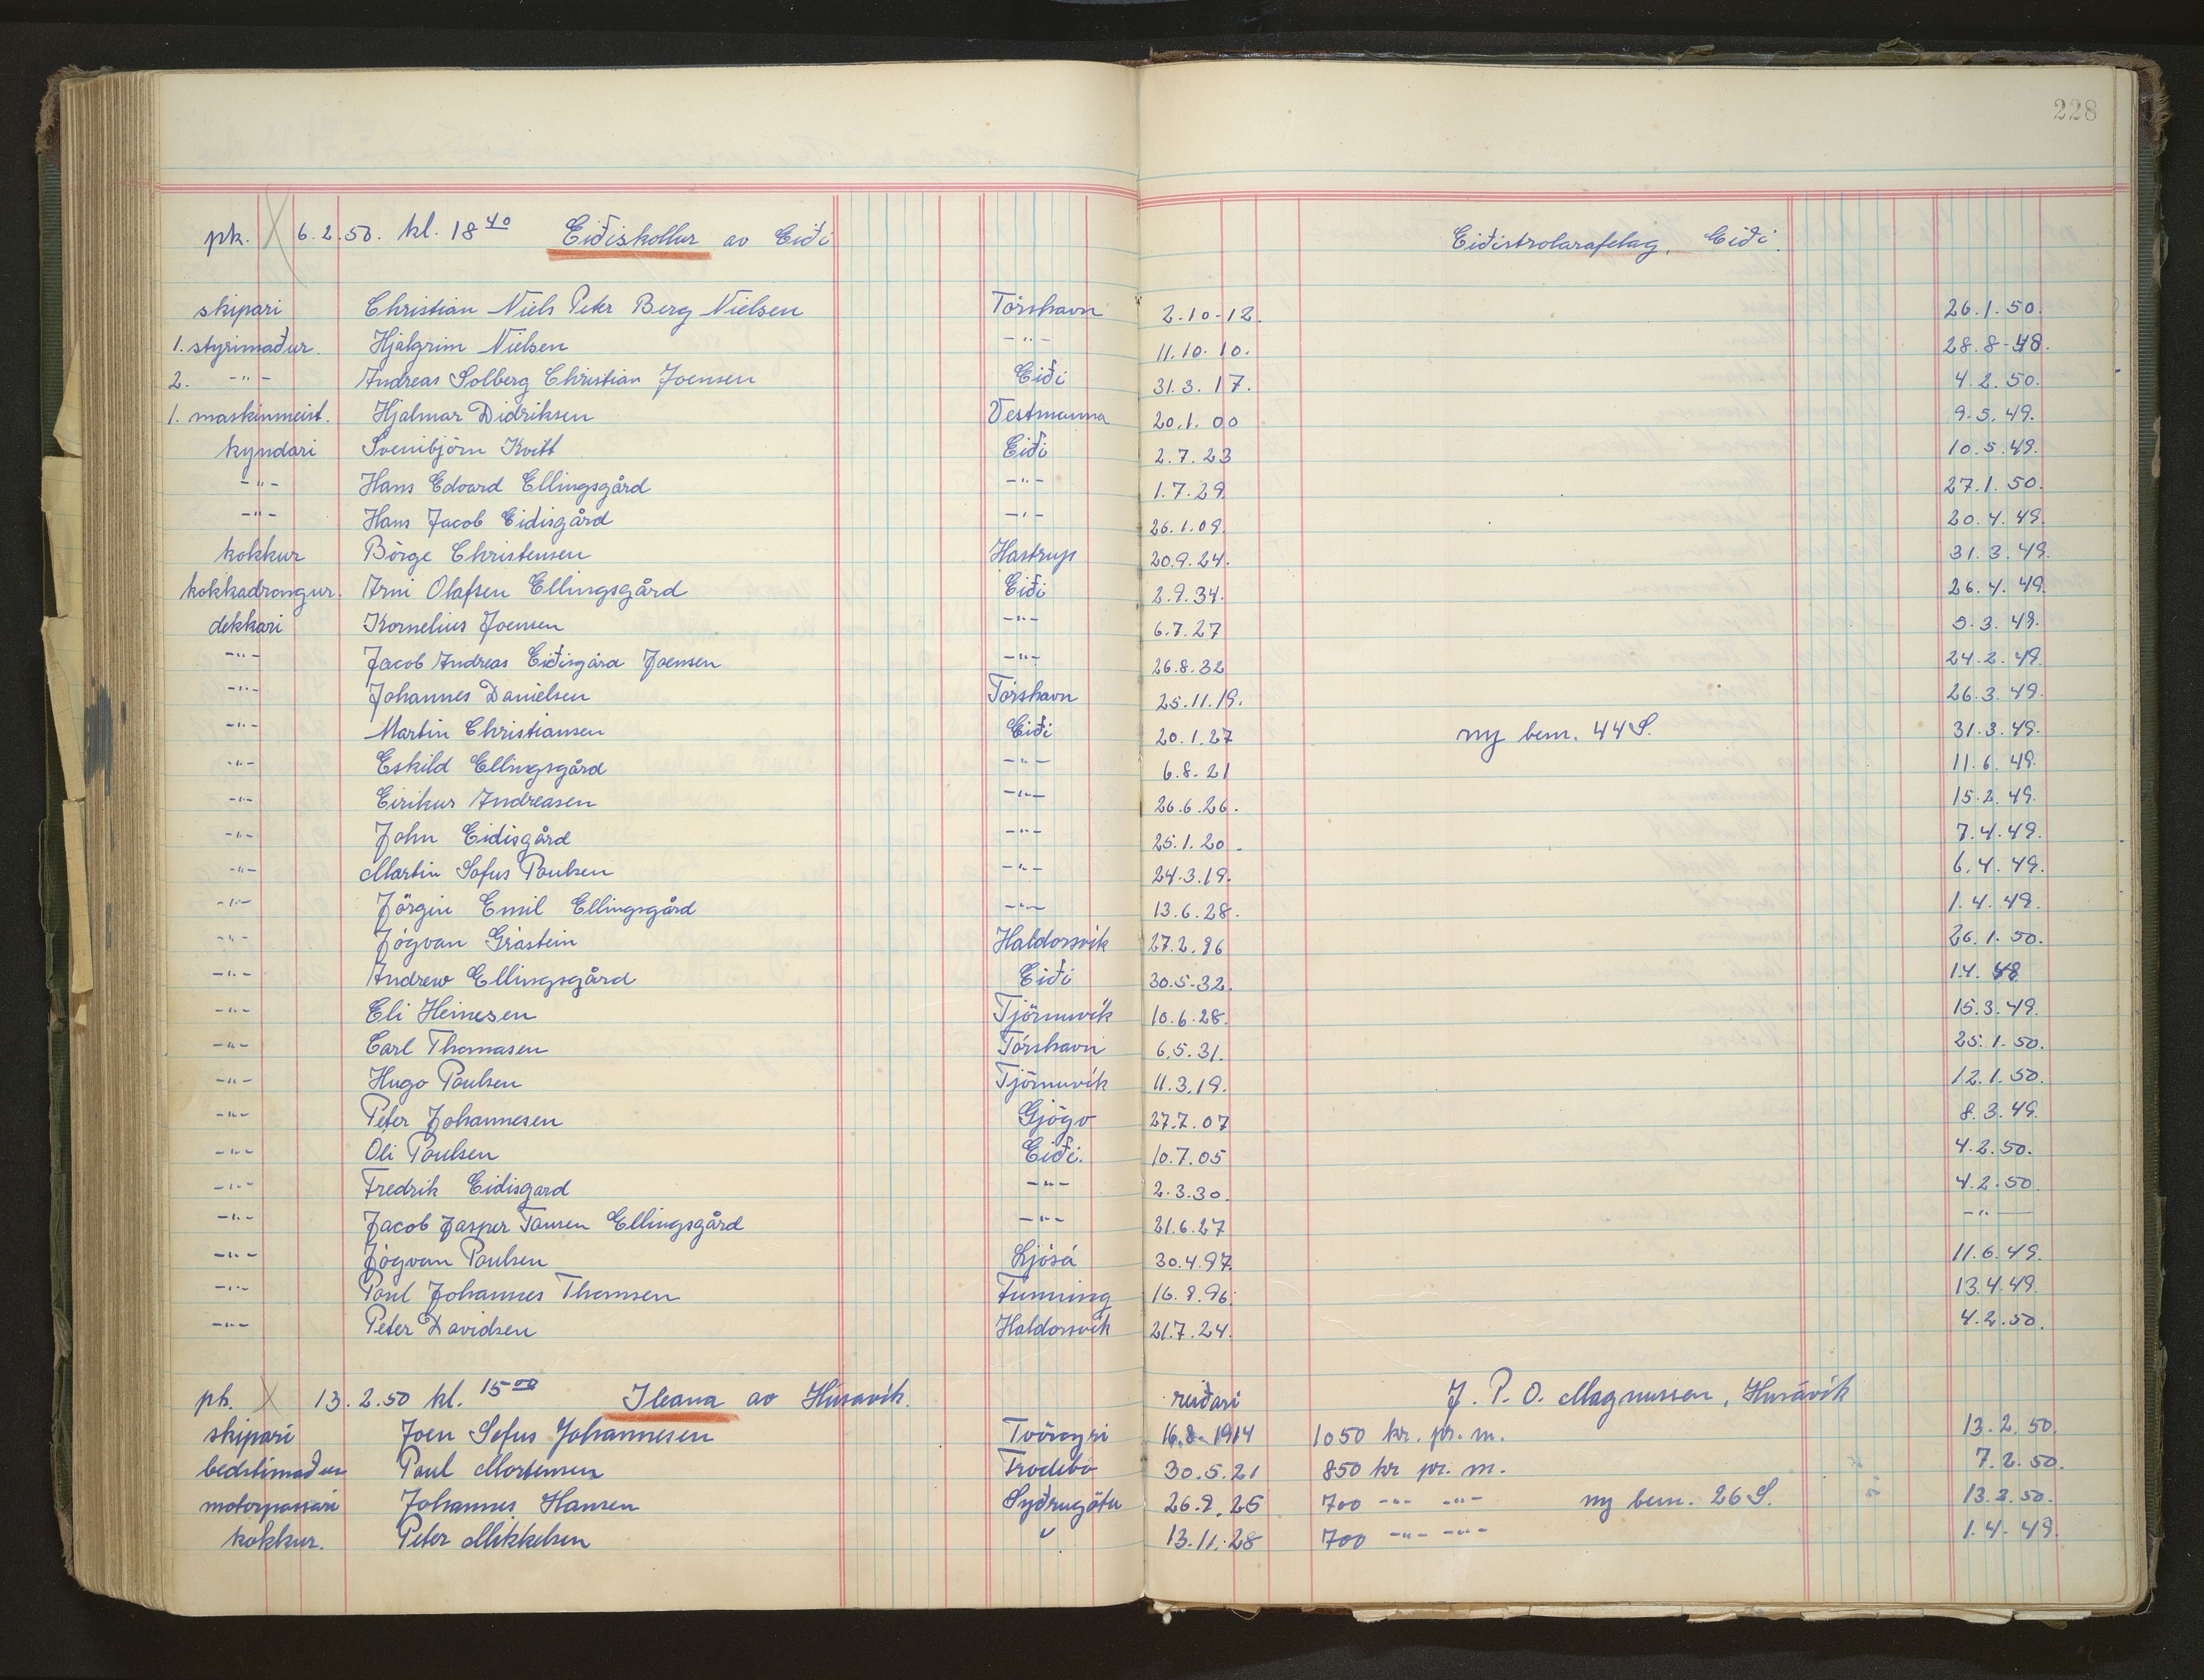 228
pk. X 6.2.50. kl. 18 40 Eiðiskollur av Eiði Eiðistrolarafelag, Eiði.
skipari Christian Niels Peter Berg Nielsen Tórshavn 2.10-12. 26.1.50.
1. styrimaður. Hjalgrim Nielsen -"- 11.10.10. 28.8-48.
2. -"- Andreas Solberg Christian Joensen Eiði 31.3.17. 4.2.50.
1. maskinmeist. Hjalmar Didriksen Vestmanna 20.1.00 9.5.49.
kyndari Sveinbjörn Kvitt Eiði 2.7.23 10.5.49.
-"- Hans Edvard Ellingsgård -"- 1.7.29 27.1.50.
-"- Hans Jacob Eidisgård -"- 26.1.09. 20.4.49.
kokkur Börge Christensen Hastrup 20.9.24. 31.3.49.
kokkadrongur. Arni Olafsen Ellingsgård Eiði 2.9.34. 26.4.49.
dekkari Kornelius Joensen -"- 6.7.27 5.3.49.
-"- Jacob Andreas Eiðisgård Joensen -"- 26.8.32 24.2.49.
-"- Johannes Danielsen Tórshavn 25.11.19. 26.3.49.
-"- Martin Christiansen Eiði 20.1.27 ny bem. 44 S. 31.3.49.
-"- Eskild Ellingsgård -"- 6.8.21 11.6.49.
-"- Eirikur Andreasen -"- 26.6.26. 15.2.49.
-"- John Eidisgård -"- 25.1.20. 7.4.49.
-"- Martin Sofus Poulsen -"- 24.3.19. 6.4.49.
-"- Jörgin Emil Ellingsgård -"- 13.6.28. 1.4.49.
-"- Jógvan Grástein Haldorsvík 27.2.96 26.1.50.
-"- Andrew Ellingsgård Eiði 30.5.32. 1.4.48
-"- Eli Heinesen Tjörnuvík 10.6.28. 15.3.49.
-"- Carl Thomasen Tórshavn 6.5.31. 25.1.50.
-"- Hugo Poulsen Tjörnuvík 11.3.19. 12.1.50.
-"- Peter Johannesen Gjógv 27.7.07 8.3.49.
-"- Oli Poulsen Eiði. 10.7.05 4.2.50.
-"- Fredrik Eidisgard -"- 2.3.30. 4.2.50.
-"- Jacob Jasper Tausen Ellingsgård -"- 21.6.27 -"-
-"- Jógvan Poulsen Ljósá 30.4.97. 11.6.49.
-"- Poul Johannes Thomsen Funning 16.9.96. 13.4.49.
-"- Peter Davidsen Haldorsvík 21.7.24. 4.2.50.
pk. X 13.2.50 kl. 15 00 Ileana av Húsavík. reiðari J. P. O. Magnussen, Husavík
skipari Joen Sofus Johannesen Tvöroyri 16.8.1914 1050 kr. pr. m. 13.2.50.
bedstimaður Poul Mortensen Froðebö 30.5.21 850 kr pr. m. 7.2.50.
motorpassari Johannes Hansen Syðrugötu 26.9.25 700 -"- -"- ny bem. 26 S. 13.2.50.
kokkur. Peter Mikkelsen " 13.11.28 700 -"- -"- 1.4.49.